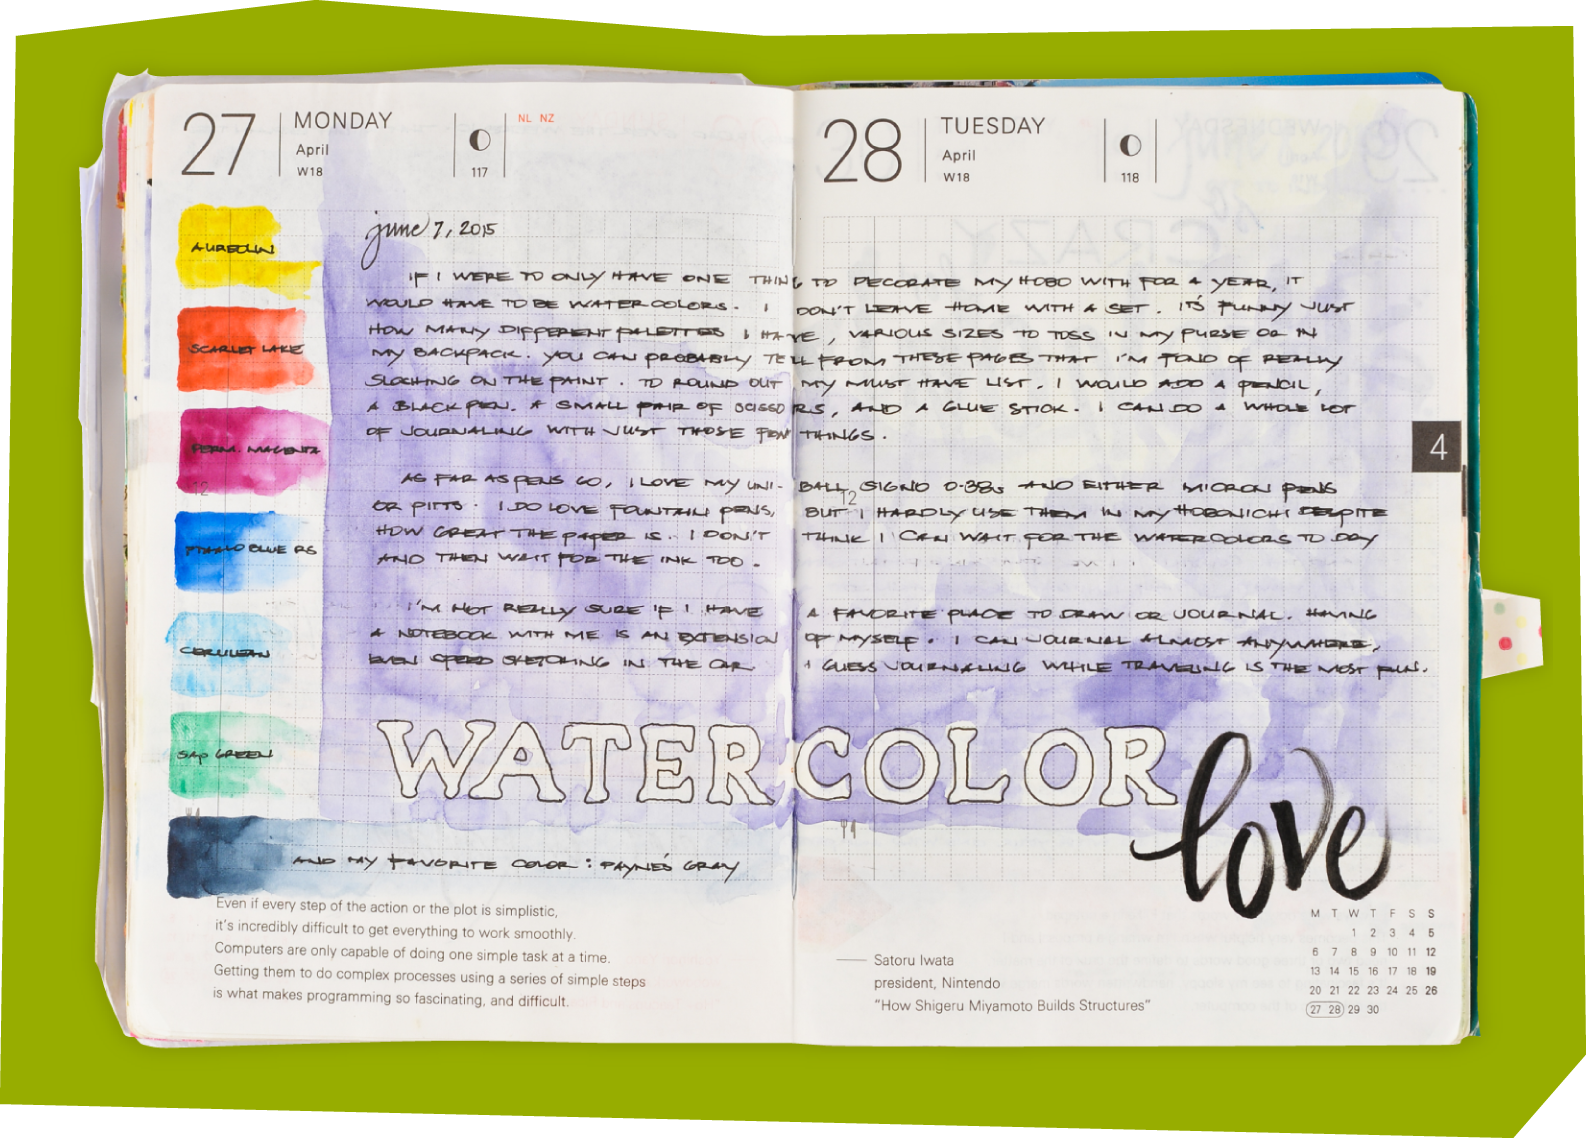 27
MONDAY
April
W18
117
NL NZ
28
TUESDAY
April
W18
118
AUREOLIN
SCARLET LAKE
PERM. MAGENTA
PTHALO BLUE RS
CERULEAN
SAP GREEN
june 7, 2015
IF I WERE TO ONLY HAVE ONE THING TO DECORATE MY HOBO WITH FOR A YEAR, IT
WOULD HAVE TO BE WATERCOLORS. I DON'T LEAVE HOME WITH A SET. IT'S FUNNY JUST
HOW MANY DIFFERENT PALETTES I HAVE, VARIOUS SIZES TO TOSS IN MY PURSE OR IN
MY BACKPACK. YOU CAN PROBABLY TELL FROM THESE PAGES THAT I'M FOND OF REALLY
SLOSHING ON THE PAINT. TO ROUND OUT MY MUST HAVE LIST, I WOULD ADD A PENCIL,
A BLACK PEN, A SMALL PAIR OF SCISSORS, AND A GLUE STICK. I CAN DO A WHOLE LOT
OF JOURNALING WITH JUST THOSE FEW THINGS.
AS FAR AS PENS GO, I LOVE MY UNI-BALL SIGNO 0.38s AND EITHER MICRON PENS
OR PITTS. I DO LOVE FOUNTAIN PENS, BUT I HARDLY USE THEM IN MY HOBONICHI DESPITE
HOW GREAT THE PAPER IS. I DON'T THINK I CAN WAIT FOR THE WATERCOLORS TO DRY
AND THEN WAIT FOR THE INK TOO.
I'M NOT REALLY SURE IF I HAVE A FAVORITE PLACE TO DRAW OR JOURNAL. HAVING
A NOTEBOOK WITH ME IS AN EXTENSION OF MYSELF. I CAN JOURNAL ALMOST ANYWHERE,
EVEN SPEED SKETCHING IN THE CAR. I GUESS JOURNALING WHILE TRAVELING IS THE MOST FUN.
12
12
WATERCOLOR
love
AND MY FAVORITE COLOR: PAYNE'S GRAY
4
Even if every step of the action or the plot is simplistic,
it's incredibly difficult to get everything to work smoothly.
Computers are only capable of doing one simple task at a time.
Getting them to do complex processes using a series of simple steps
is what makes programming so fascinating, and difficult.
Satoru Iwata
president, Nintendo
"How Shigeru Miyamoto Builds Structures"
M T W T F S S
1 2 3 4 5
6 7 8 9 10 11 12
13 14 15 16 17 18 19
20 21 22 23 24 25 26
27 28 29 30